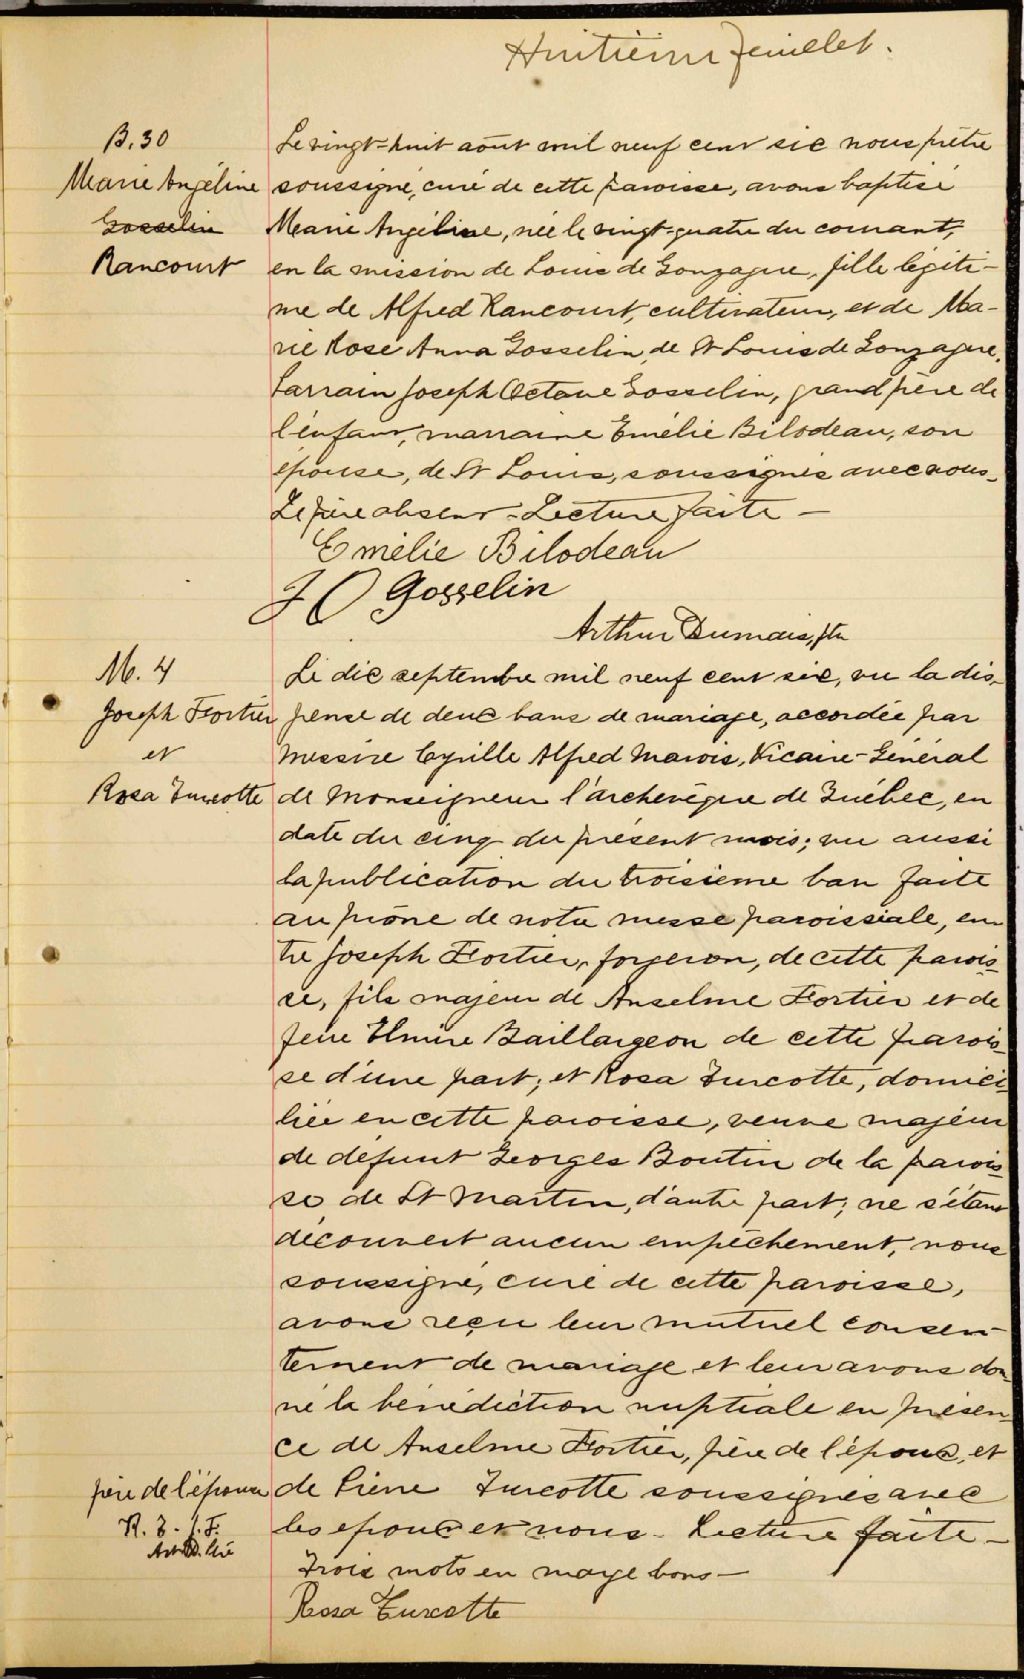 Huitième feuillet.
B. 30
Marie Angéline
Gosselin
Rancourt
Le vingt-huit août mil neuf cent six nous prêtre
soussigné, curé de cette paroisse, avons baptisé
Marie Angéline, née le vingt-quatre du courant,
en la mission de Louis de Gonzague, fille légiti-
me de Alfred Rancourt, cultivateur, et de Ma-
rie Rose Anna Gosselin, de St Louis de Gonzague.
Parrain Joseph Octave Gosselin, grand père de
l'enfant, marraine Emélie Bilodeau, son
épouse, de St Louis, soussignés avec nous.
Le père absent - Lecture faite -
Emélie Bilodeau
J O Gosselin
Arthur Dumais, ptre
M. 4
Joseph Fortier
et
Rosa Turcotte
Le dix septembre mil neuf cent six, vu la dis-
pense de deux bans de mariage, accordée par
Messire Cyrille Alfred Marois, Vicaire-Général
de Monseigneur l'archevêque de Québec, en
date du cinq du présent mois; vu aussi
la publication du troisième ban faite
au prône de notre messe paroissiale, en
tre Joseph Fortier, forgeron, de cette parois-
se, fils majeur de Anselme Fortier et de
feue Elmire Baillargeon de cette parois-
se d'une part; et Rosa Turcotte, domici-
liée en cette paroisse, veuve majeur
de défunt Georges Boutin de la parois-
se de St Martin, d'autre part; ne s'étant
découvert aucun empêchement, nous
soussigné, curé de cette paroisse,
avons reçu leur mutuel consen-
tement de mariage et leur avons don-
né la bénédiction nuptiale en présen-
ce de Anselme Fortier, père de l'époux, et
de Pierre Turcotte soussignés avec
les epoux et nous - Lecture faite -
père de l'épouse
R. T. - J. F.
Trois mots en marge bons -
Rosa Turcotte